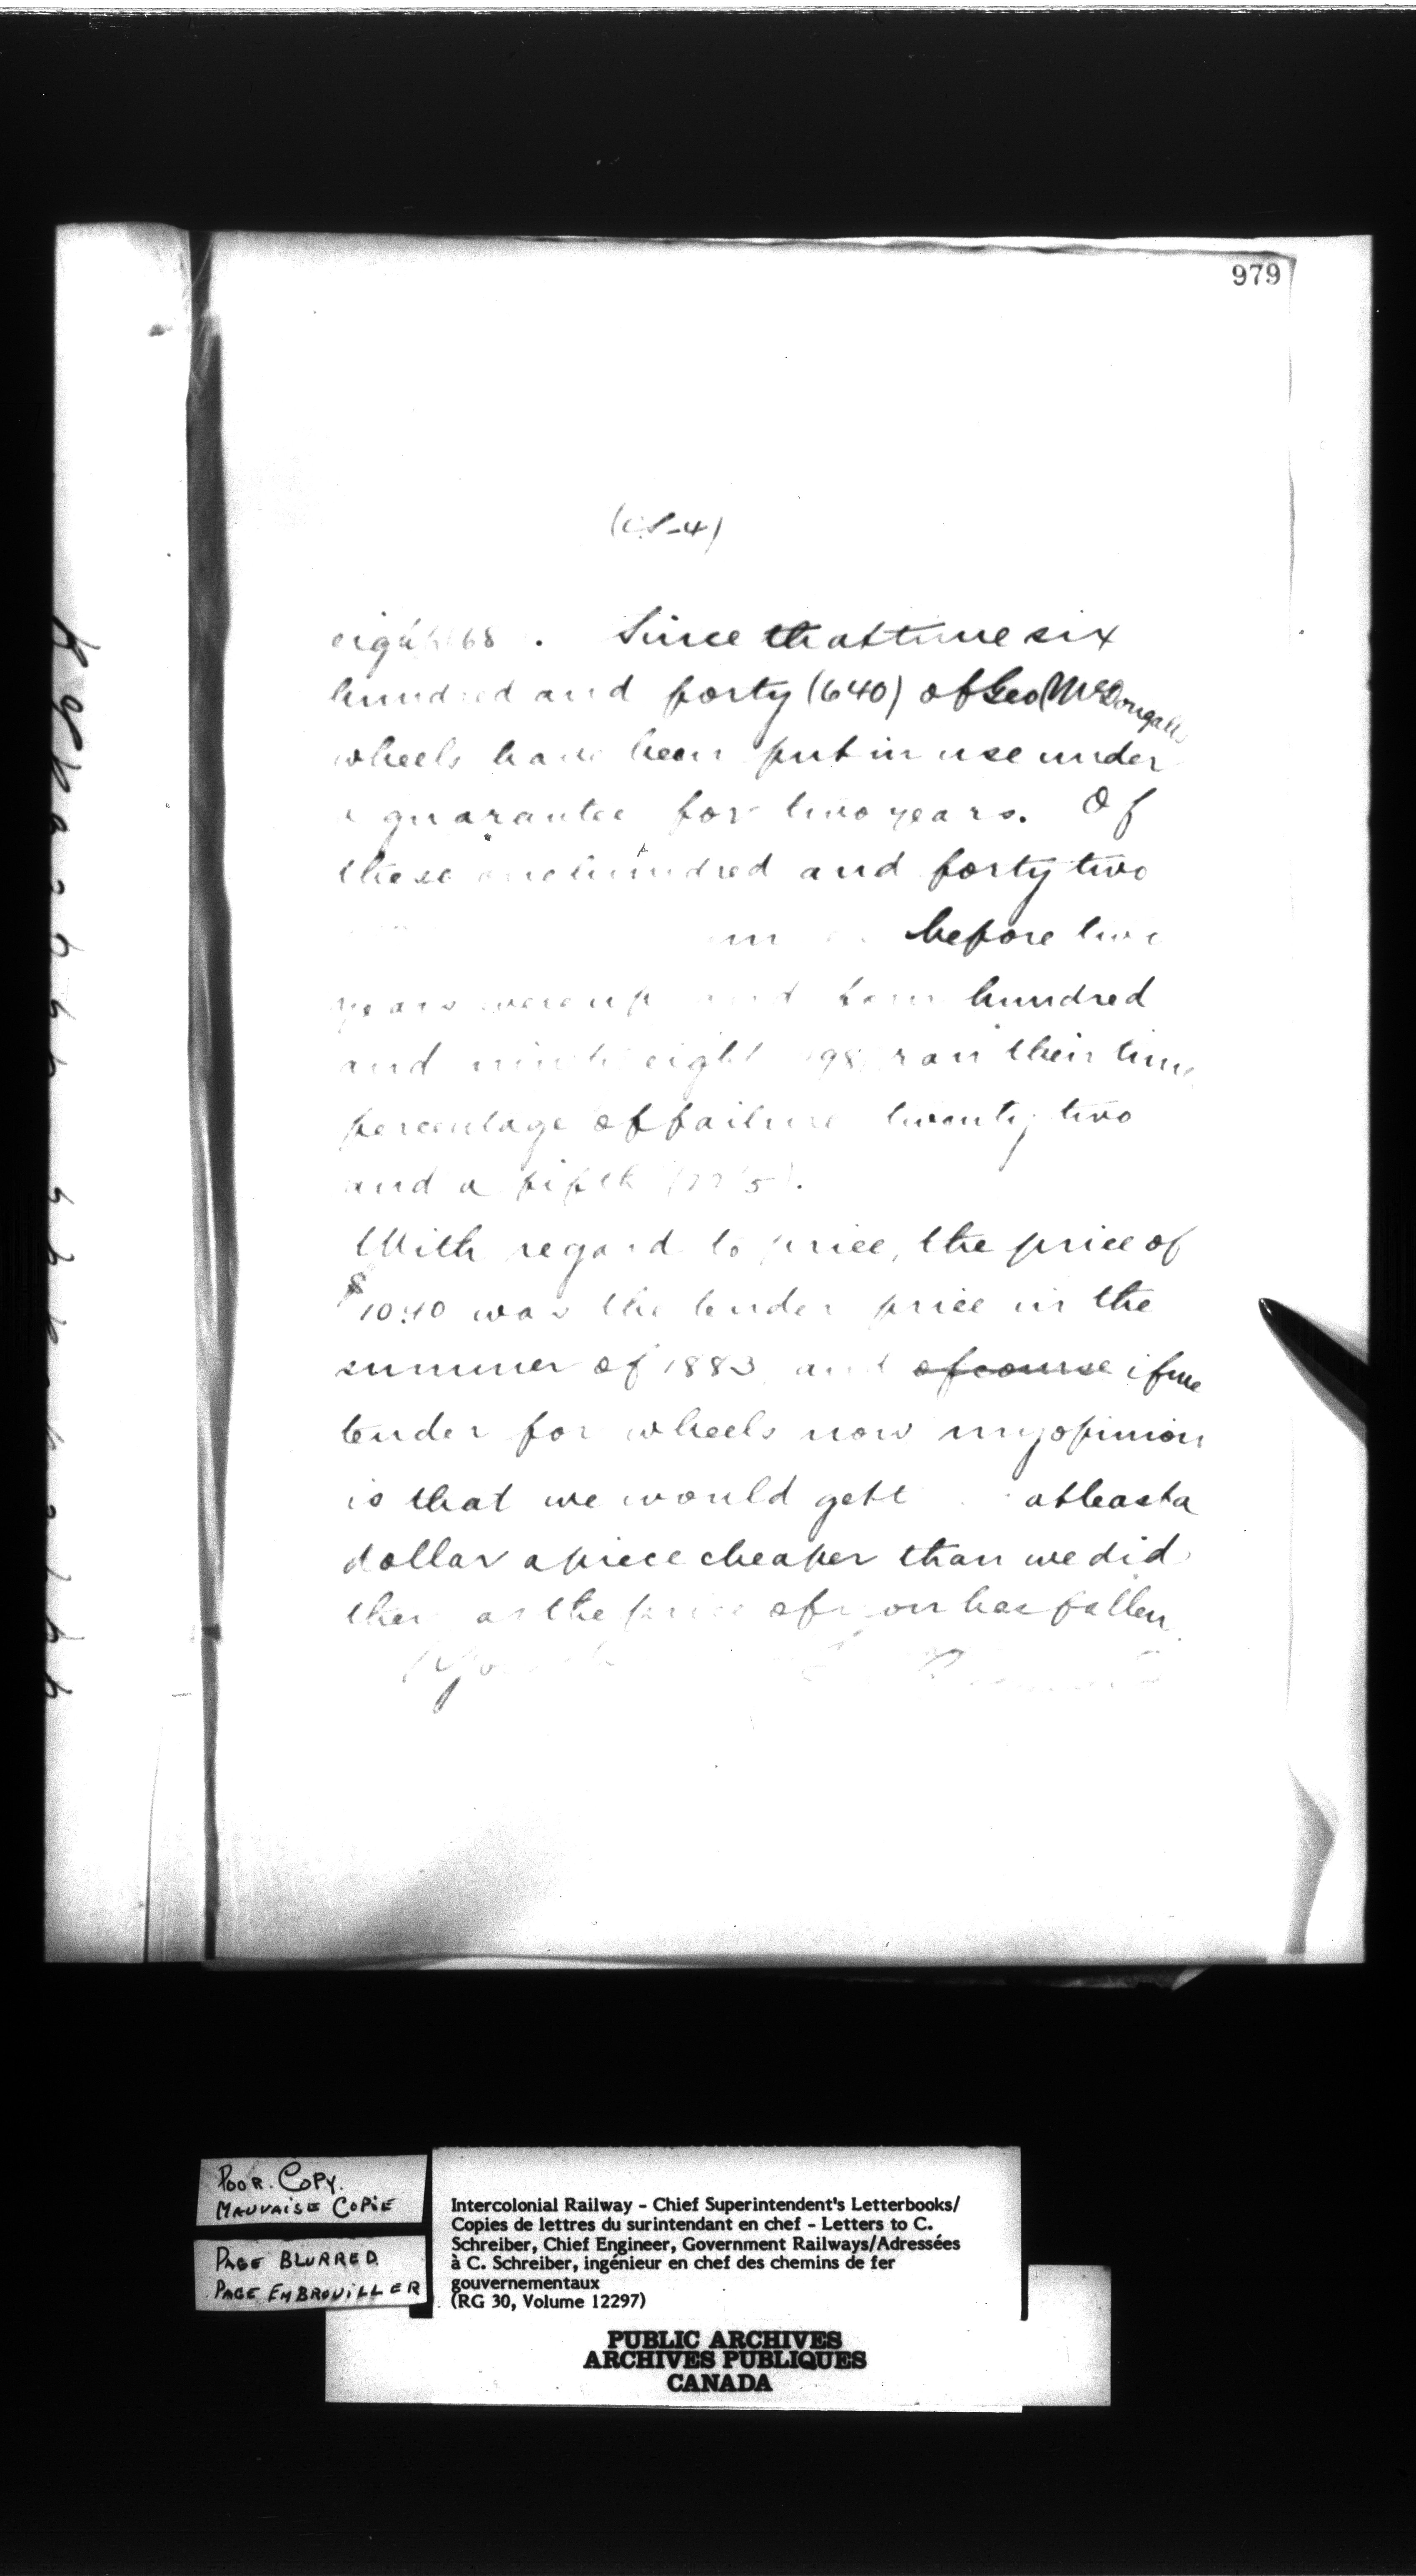 979
(CS-4)
eight 68 . Since that time six
hundred and forty (640) of Geo McDougalls
wheels have been put in use under
a guarantee for two years. Of
these one hundred and forty two
before two
years were up and four hundred
and ninety eight 498 ran their time
percentage of failure twenty two
and a fifth
With regard to price, the price of
$10.40 was the tender price in the
summer of 1883 and of course if we
tender for wheels now my opinion
is that we would get at least a
dollar apiece cheaper than we did
then as the price of iron has fallen.
POOR. COPY.
MAUVAISE COPIE
PAGE BLURRED
PAGE EMBROUILLER
Intercolonial Railway - Chief Superintendent's Letterbooks/
Copies de lettres du surintendant en chef - Letters to C.
Schreiber, Chief Engineer, Government Railways/Adressées
à C. Schreiber, ingénieur en chef des chemins de fer
gouvernementaux
(RG 30, Volume 12297)
PUBLIC ARCHIVES
ARCHIVES PUBLIQUES
CANADA